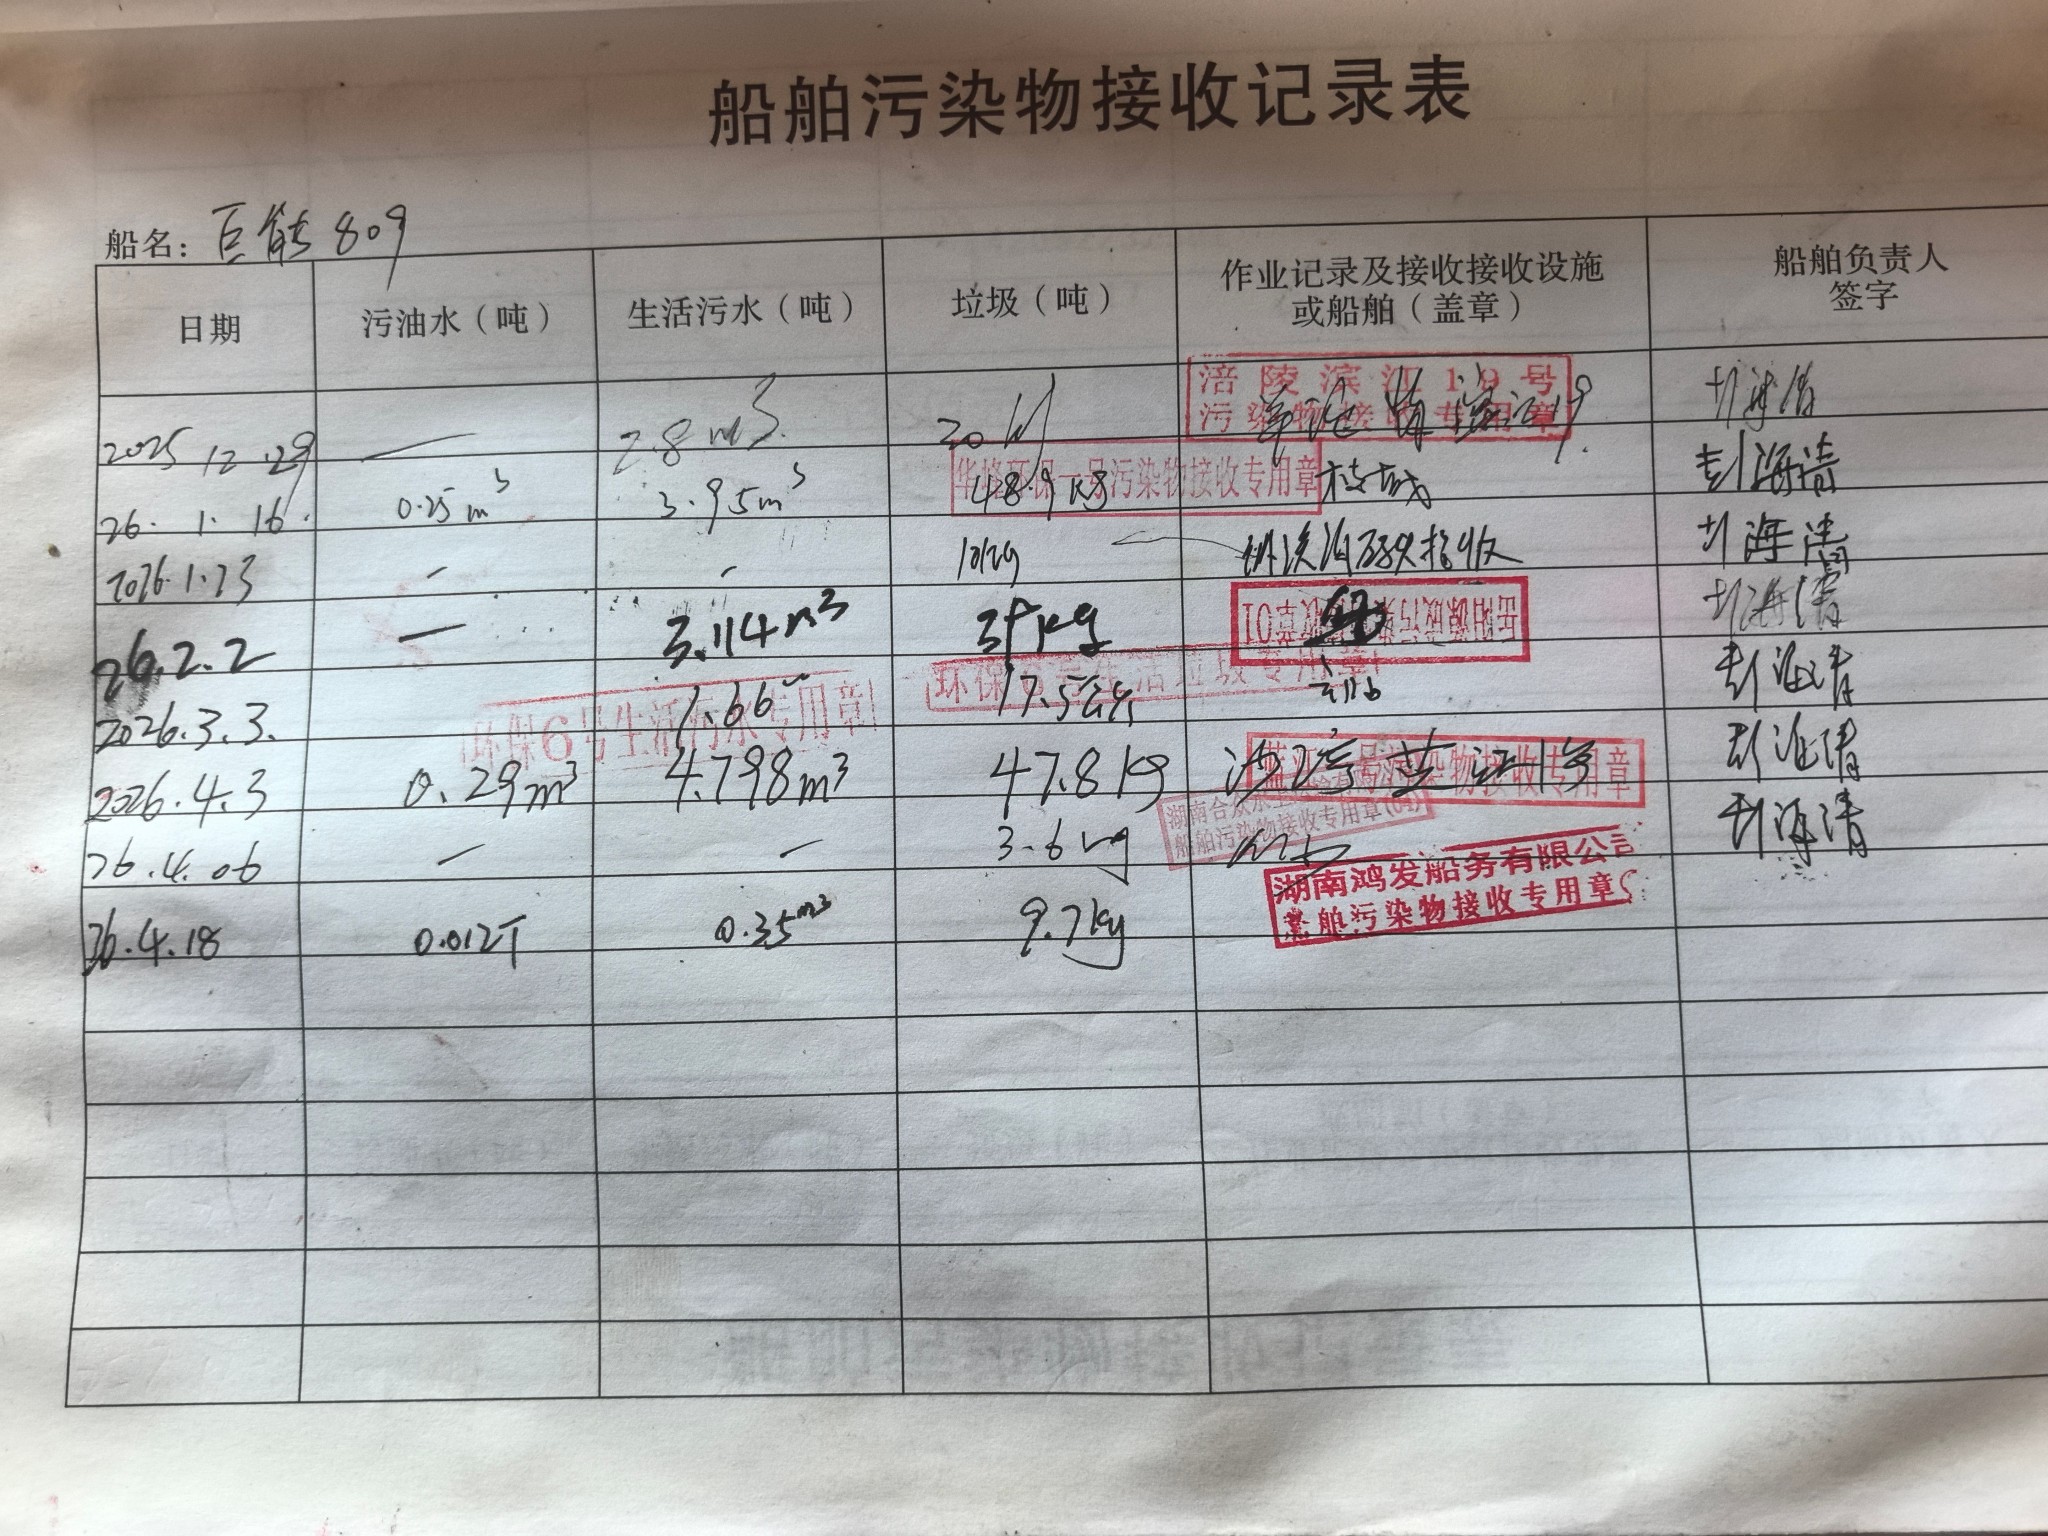 船舶污染物接收记录表
船名：巨能809
日期 污油水（吨） 生活污水（吨） 垃圾（吨） 作业记录及接收接收设施或船舶（盖章） 船舶负责人签字
2025.12.29 — 2.8m3 20 涪陵滨江19号污染物接收专用章
26.1.16. 0.25m3 3.95m3 48.9kg 华峰环保一号污染物接收专用章 彭海清
2026.1.23 - - 10kg 彭海清
26.2.2 — 3.114m3 kg 彭海清
2026.3.3. 1.66 环保6号生活污水专用章 17.5 环保6号生活垃圾专用章 彭海清
2026.4.3 0.29m3 4.798m3 47.8kg 蓝江号污染物接收专用章 彭海清
26.4.06 - - 3.6kg 船舶污染物接收专用章 彭海清
26.4.18 0.012T 0.35m3 9.7kg 湖南鸿发船务有限公司
船舶污染物接收专用章